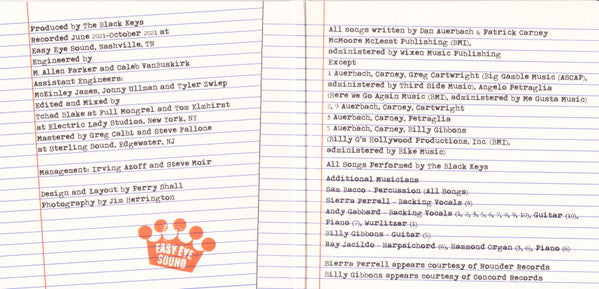 Produced by The Black Keys
Recorded June 2021-October 2021 at
Easy Eye Sound, Nashville, TN
Engineered by
M. Allen Parker and Caleb VanBuskirk
Assistant Engineers:
McKinley James, Jonny Ullman and Tyler Zwiep
Edited and Mixed by
Tchad Blake at Full Mongrel and Tom Elmhirst
at Electric Lady Studios, New York, NY
Mastered by Greg Calbi and Steve Fallone
at Sterling Sound, Edgewater, NJ
Management: Irving Azoff and Steve Moir
Design and Layout by Perry Shall
Photography by Jim Herrington
EASY EYE
SOUND
All songs written by Dan Auerbach & Patrick Carney
McMoore McLesst Publishing (BMI),
administered by Wixen Music Publishing
Except
1 Auerbach, Carney, Greg Cartwright (Big Gamble Music (ASCAP),
administered by Third Side Music), Angelo Petraglia
(Here We Go Again Music (BMI), administered by Me Gusta Music)
2, 9 Auerbach, Carney, Cartwright
3 Auerbach, Carney, Petraglia
5 Auerbach, Carney, Billy Gibbons
(Billy G's Hollywood Productions, Inc. (BMI),
administered by Bike Music)
All Songs Performed by The Black Keys
Additional Musicians
Sam Bacco - Percussion (All Songs)
Sierra Ferrell - Backing Vocals (4)
Andy Gabbard - Backing Vocals (1, 2, 3, 5, 6, 7, 8, 9, 10), Guitar (10),
Piano (7), Wurlitzer (1)
Billy Gibbons - Guitar (5)
Ray Jacildo - Harpsichord (6), Hammond Organ (3, 6), Piano (6)
Sierra Ferrell appears courtesy of Rounder Records
Billy Gibbons appears courtesy of Concord Records